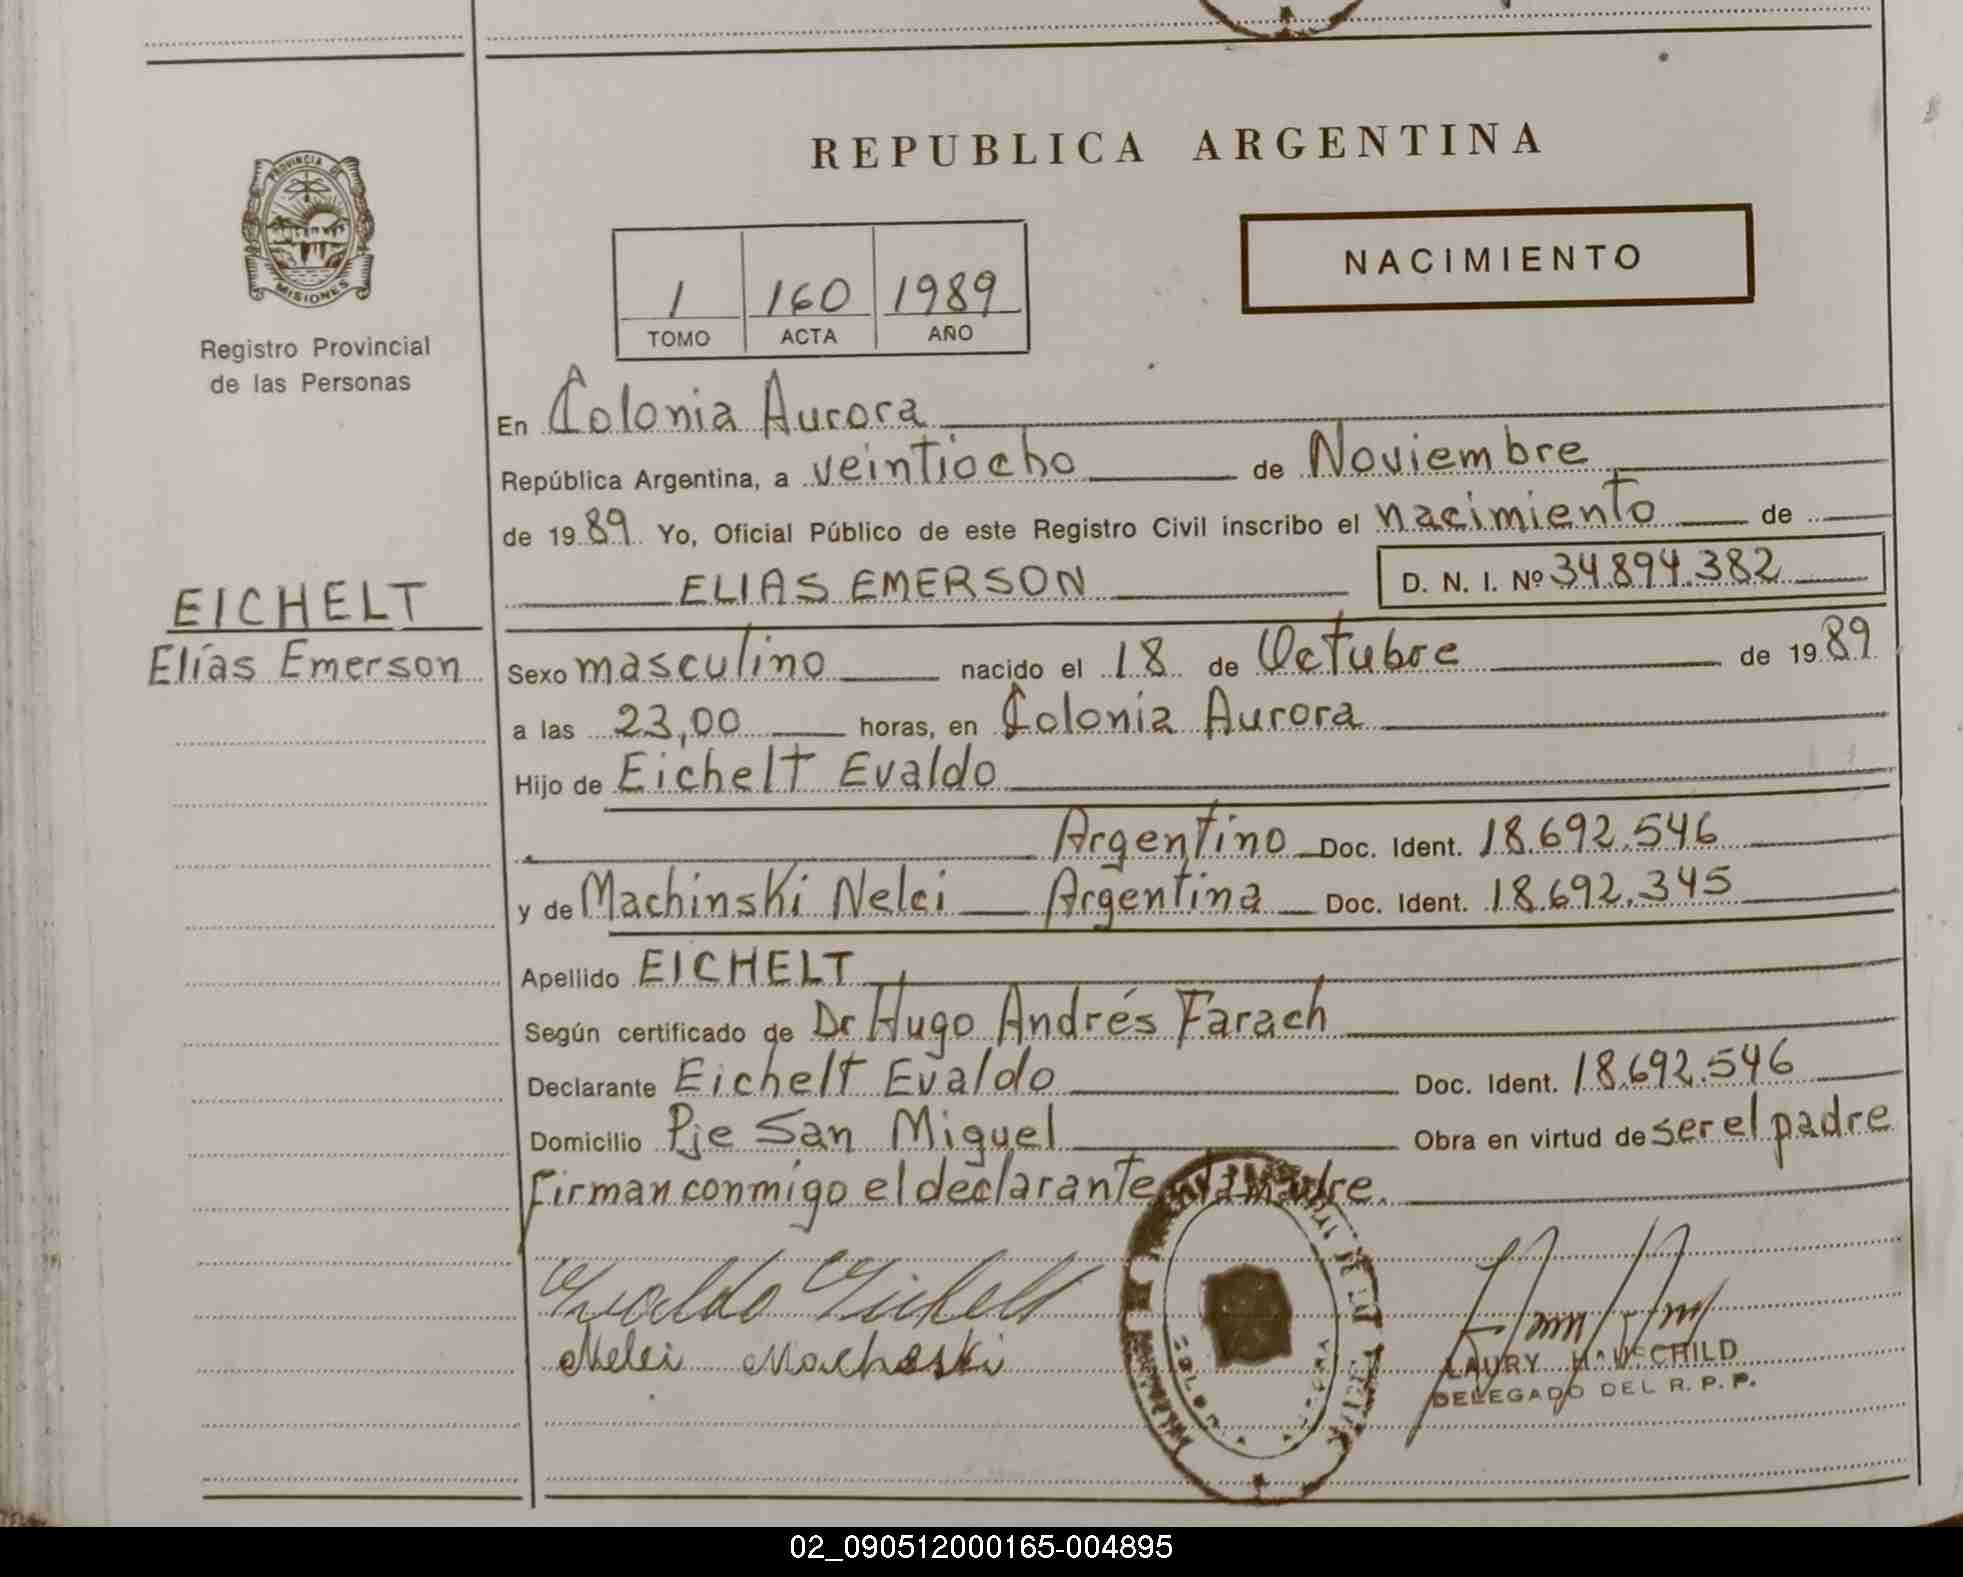 REPUBLICA ARGENTINA
PROVINCIA DE
MISIONES
Registro Provincial
de las Personas
NACIMIENTO
1 160 1989
TOMO ACTA AÑO
En Colonia Aurora
República Argentina, a veintiocho de Noviembre
de 1989 Yo, Oficial Público de este Registro Civil inscribo el nacimiento de
ELIAS EMERSON D. N. I. Nº 34.894.382
EICHELT
Elías Emerson
Sexo masculino nacido el 18 de Octubre de 1989
a las 23,00 horas, en Colonia Aurora
Hijo de Eichelt Evaldo
Argentino Doc. Ident. 18.692.546
y de Machinski Nelci Argentina Doc. Ident. 18.692.345
Apellido EICHELT
Según certificado de Dr Hugo Andrés Farach
Declarante Eichelt Evaldo Doc. Ident. 18.692.546
Domicilio Pje San Miguel Obra en virtud de ser el padre
Firman conmigo el declarante y la madre.
Evaldo Eichelt
Nelci Macheski
LAURY
DELEGADO DEL R. P. P.
02_090512000165-004895